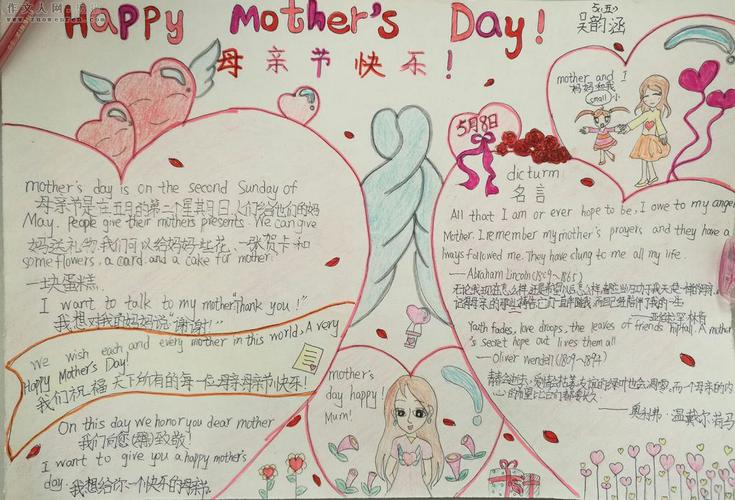 作文人网
Happy Mother's Day!
五(五)
吴韵涵
母亲节快乐!
mother and I
妈妈和我
small 小
5月8日
mother's day is on the second Sunday of
母亲节是在五月的第二个星期日,人们给他们的妈
May. People give their mothers presents. We can give
妈送礼物,我们可以给妈妈红花、一张贺卡和
some flowers, a card and a cake for mother.
一块蛋糕.
I want to talk to my mother"Thank you!"
我想对我的妈妈说"谢谢!"
We wish each and every mother in this world, A very
Happy Mother's Day!
我们祝福天下所有的每一位母亲母亲节快乐!
On this day we honor you dear mother
我们向您致敬!
I want to give you a happy mother's
day. 我想给你一个快乐的母亲节
mother's
day happy!
Mum!
dicturm
名言
All that I am or ever hope to be, I owe to my angel
Mother. I remember my mother's prayers and they have a
lways followed me. They have clung to me all my life.
——Abraham Lincoln (1809~1865)
无论我现在怎么样,还是希望以后怎么样,
记得母亲的
——亚伯拉罕·林肯
Youth fades, love droops, the leaves of friends hip fall. A mother
's secret hope out lives them all
——Oliver wendell (1809~1894)
青春会逝去,爱情会枯萎,友谊的绿叶也会凋零,而一个母亲的内
心的希望比它们都要长久
——奥利弗·温戴尔·荷马